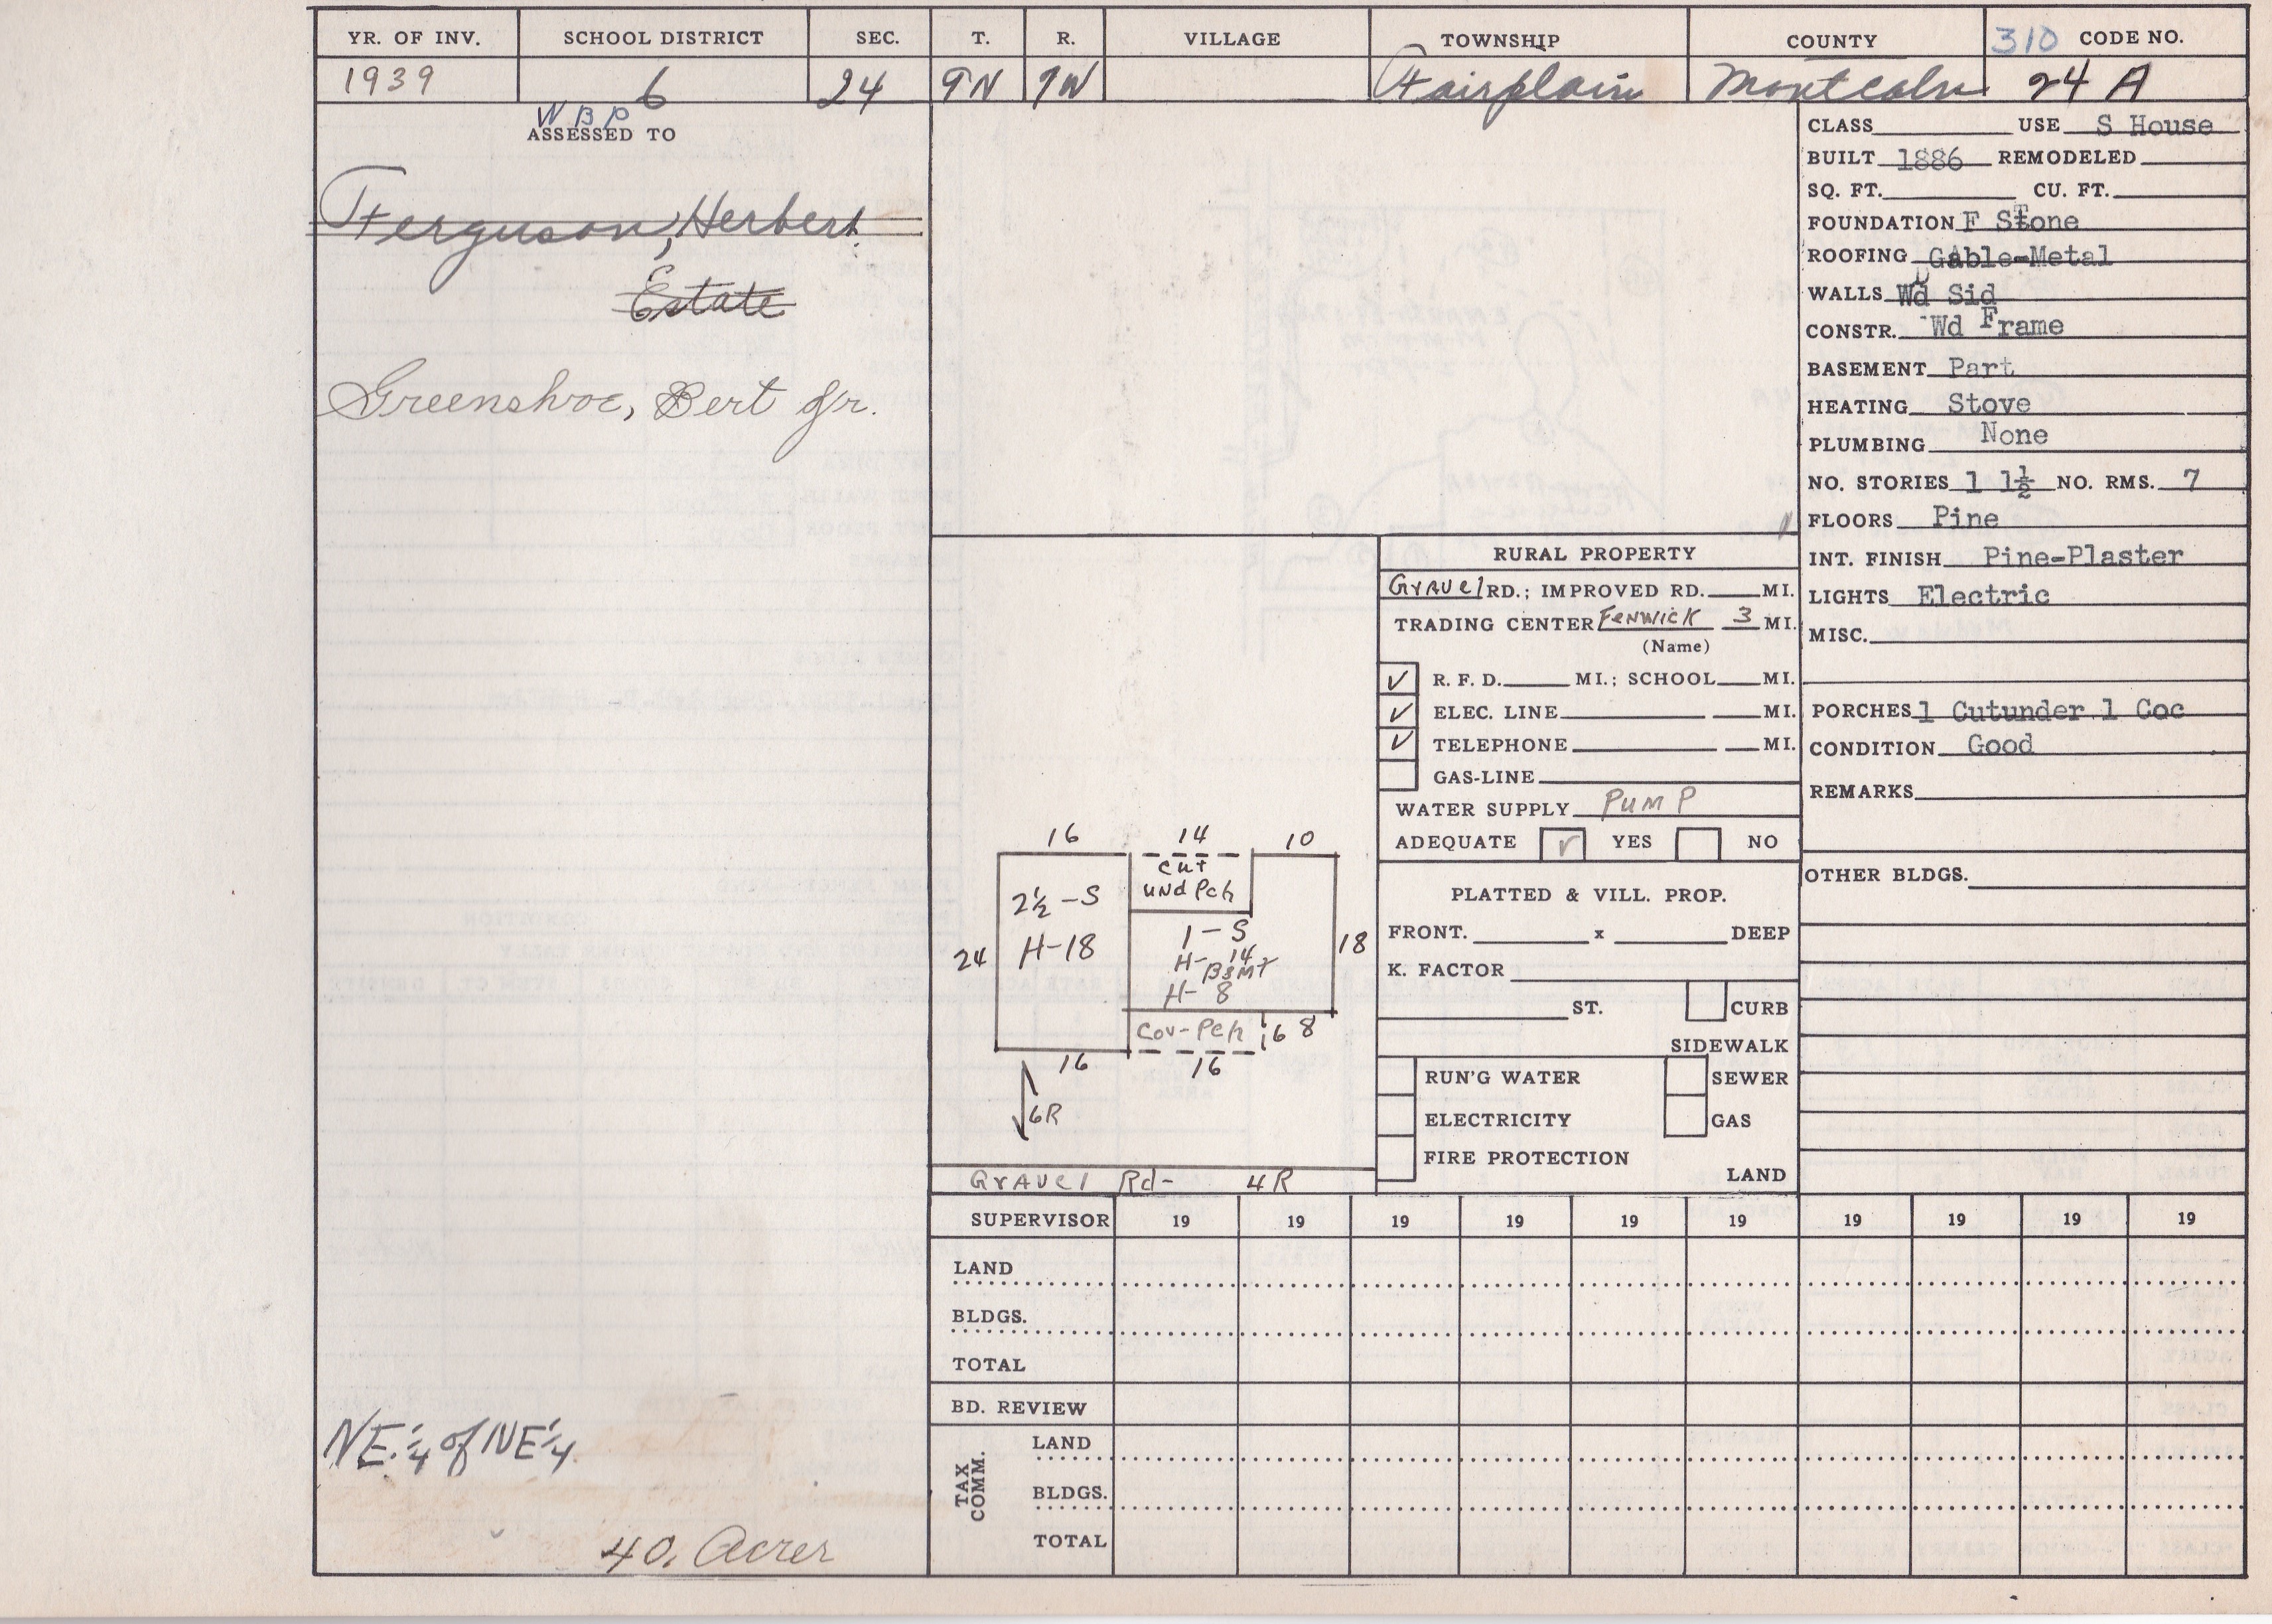 YR. OF INV. SCHOOL DISTRICT SEC. T. R. VILLAGE TOWNSHIP COUNTY 310 CODE NO.
1939 6 24 9N 7W Fairplain Montcalm 24 A
W B P
ASSESSED TO
Ferguson, Herbert
Estate
Greenshoe, Bert Jr.
NE ¼ of NE ¼
40. Acres
CLASS USE S House
BUILT 1886 REMODELED
SQ. FT. CU. FT.
FOUNDATION F Stone
ROOFING Gable-Metal
WALLS Wd Sid
CONSTR. Wd Frame
BASEMENT Part
HEATING Stove
PLUMBING None
NO. STORIES 1 1½ NO. RMS. 7
FLOORS Pine
INT. FINISH Pine-Plaster
LIGHTS Electric
MISC.
PORCHES 1 Cutunder 1 Coc
CONDITION Good
REMARKS
OTHER BLDGS.
RURAL PROPERTY
Gravel RD.; IMPROVED RD. MI.
TRADING CENTER Fenwick 3 MI.
(Name)
✓ R. F. D. MI.; SCHOOL MI.
✓ ELEC. LINE MI.
✓ TELEPHONE MI.
GAS-LINE
WATER SUPPLY PUMP
ADEQUATE ✓ YES NO
PLATTED & VILL. PROP.
FRONT. x DEEP
K. FACTOR
ST. CURB
SIDEWALK
RUN'G WATER SEWER
ELECTRICITY GAS
FIRE PROTECTION
LAND
16 14 10
cut
und Pch
2½-S
H-18
24
1-S
H-14
BSMT
H-8
18
Cov-Pch 6 8
16 16
6R
Gravel Rd- 4R
SUPERVISOR 19 19 19 19 19 19 19 19 19 19
LAND
BLDGS.
TOTAL
BD. REVIEW
TAX COMM.
LAND
BLDGS.
TOTAL